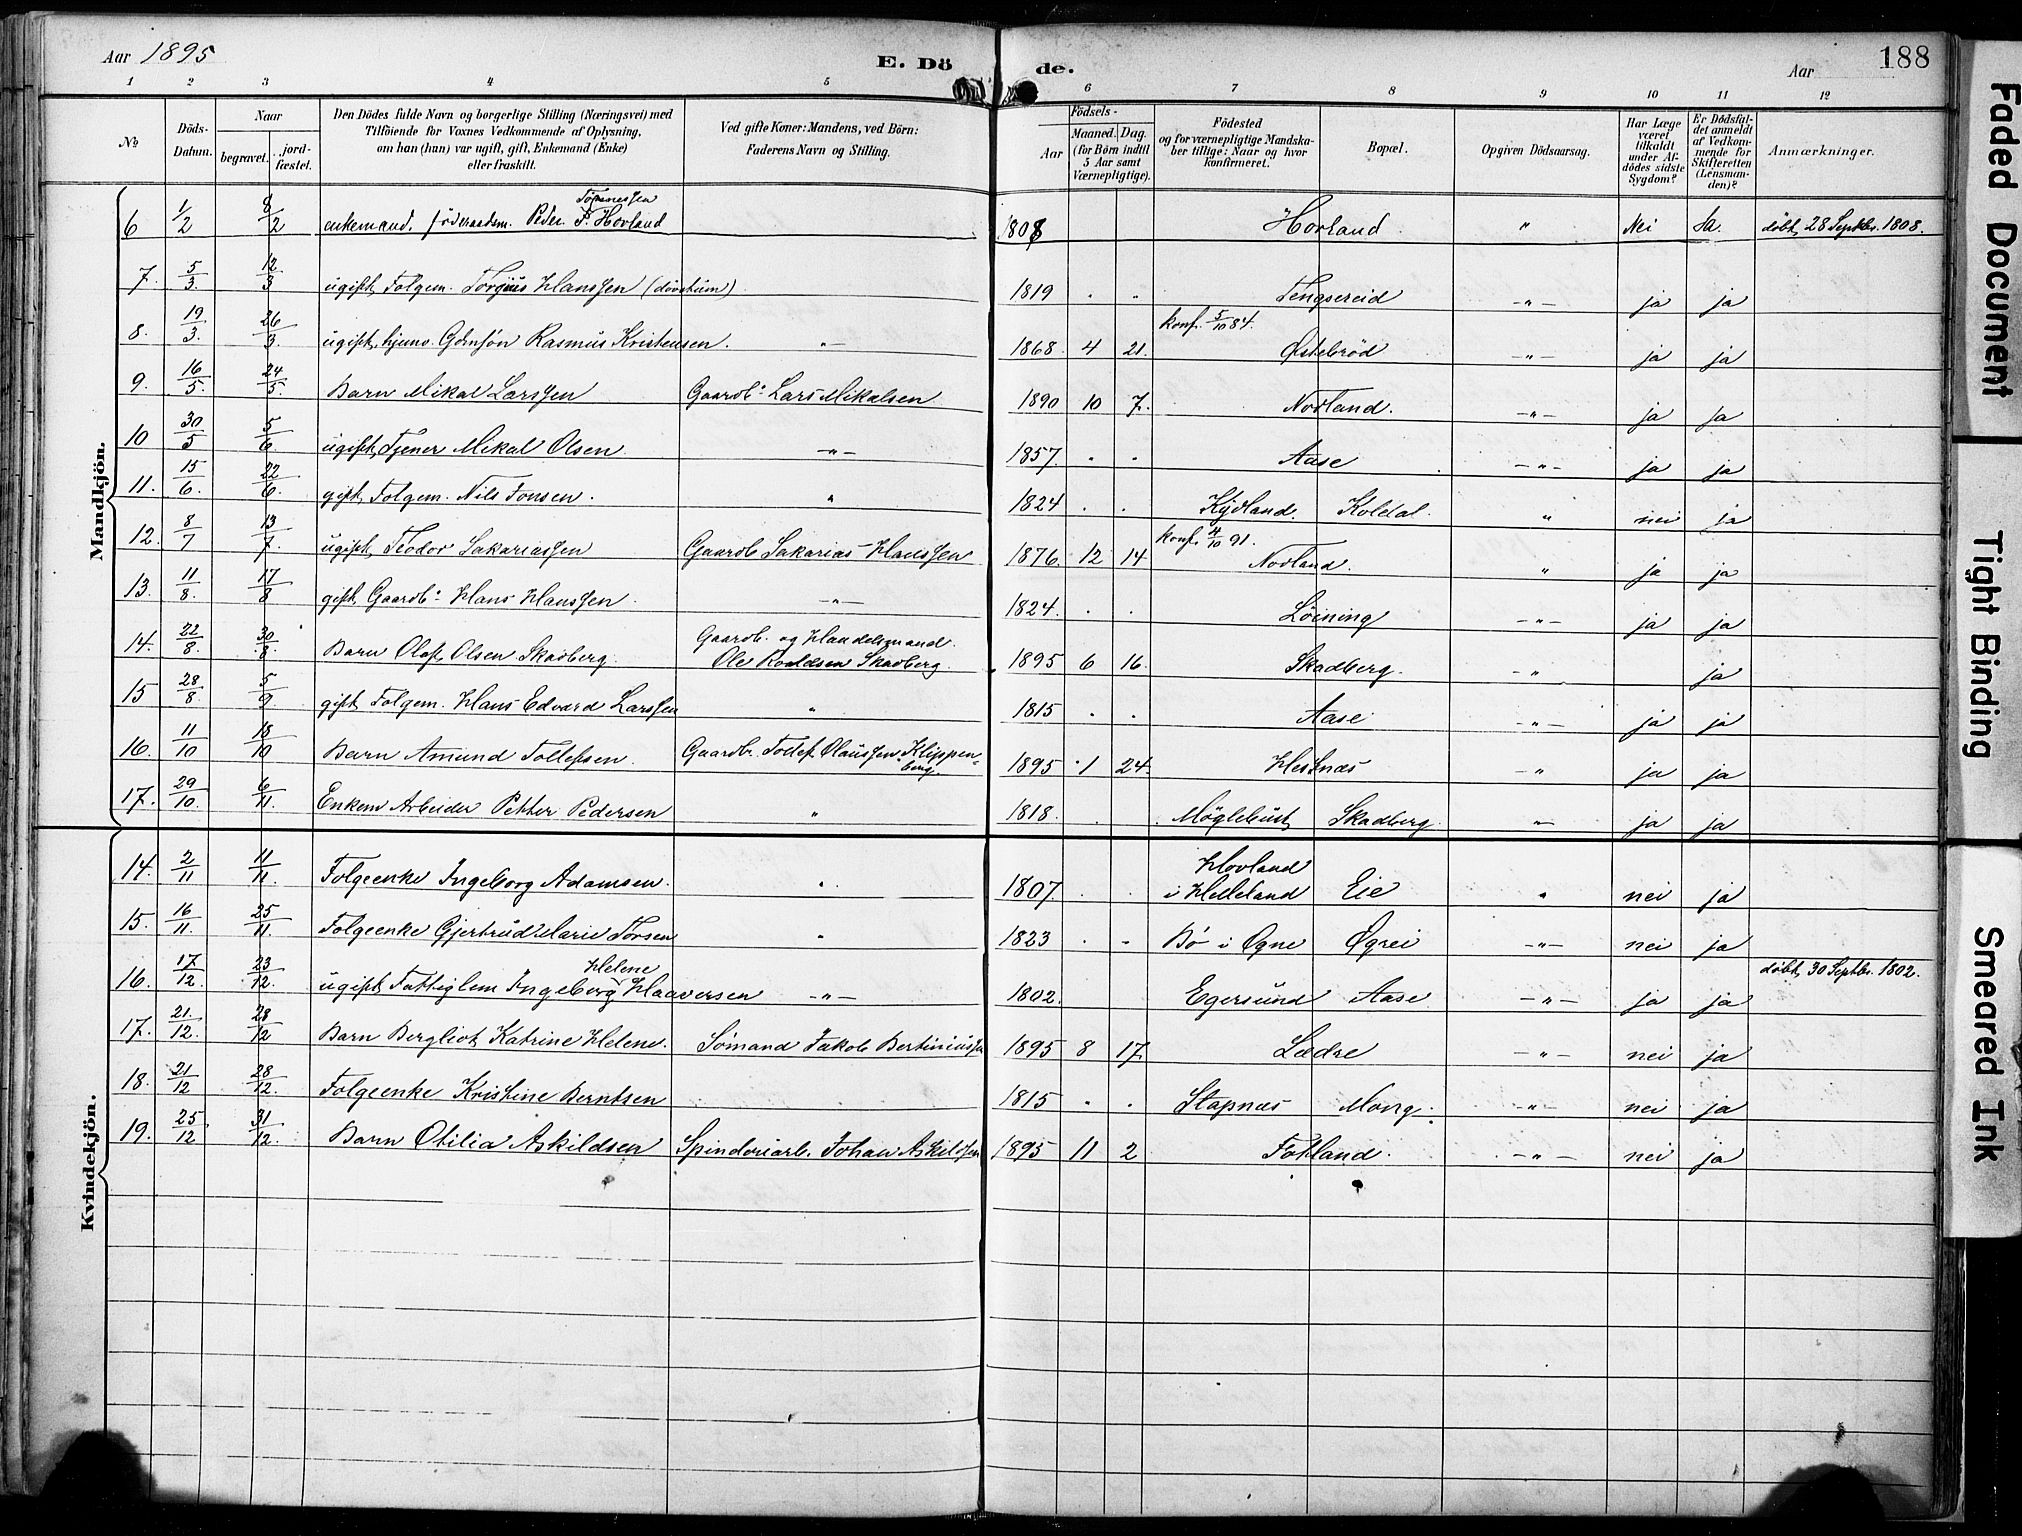 Aar 1895
E. Dö
de.
Aar
188
1 2 3 4 5 6 7 8 9 10 11 12
No
Döds-Datum.
Naar
begravet.
jord-fæstet.
Den Dödes fulde Navn og borgerlige Stilling (Næringsvei) med
Tilföiende for Voxnes Vedkommende af Oplysning,
om han (hun) var ugift, gift, Enkemand (Enke)
eller fraskilt.
Ved gifte Koner: Mandens, ved Börn:
Faderens Navn og Stilling.
Födsels-
Aar
Maaned. Dag.
(for Börn indtil
5 Aar samt
Værnepligtige).
Födested
og for værnepligtige Mandska-
ber tillige: Naar og hvor
konfirmeret.
Bopæl.
Opgiven Dödsaarsag.
Har Læge
været
tilkaldt
under Af-
dödes sidste
Sygdom?
Er Dödsfal-
det anmeldt
af Vedkom-
mende for
Skifteretten
(Lensman-
den)?
Anmærkninger.
Mandkjön.
6 1/2 8/2 enkemand, föderaadsm. Peder Tønnessen Hovland 1808 Hovland " Nei Ja. døbt 28 Septbr. 1808.
7. 5/3. 12/3 ugift, Folgem. Torgius Hanssen (døvstum) 1819 " " Tengsereid -"- ja ja
8. 19/3. 26/3. ugift, Rasmus Kristensen. -"- 1868 4 21. konf. 5/10 84. Østebrød -"- ja ja
9. 16/5. 24/5. Barn Mikal Larssen Gaardb: Lars Mikalsen 1890 10 7. Nodland. -"- ja ja
10 30/5 5/6 ugift, Tjener Mikal Olsen -"- 1857. " " Aase -"- ja ja
11. 15/6. 22/6. gift, Folgem. Nils Jonsen. " 1824 . . Kydland. Koldal. " nei ja
12. 8/7 13/7. ugift, Teodor Sakariassen Gaardb Sakarias Hanssen 1876 12 14. konf. 4/10 91. Nodland. " ja ja
13. 11/8. 17/8 gift, Gaardb: Hans Hanssen. -"- 1824. . . Løining -"- ja ja
14. 22/8. 30/8. Barn Olaf Olsen Skadberg. Gaardb. og Handelsmand. Ole Roaldsen Skadberg. 1895 6 16. Skadberg. -"- ja
15 28/8. 5/9 gift Folgem. Hans Edvard Larssen " 1815 . . Aase -"- ja ja
16. 11/10 18/10 Barn Amund Tollefsen. Gaardbr. Tollef Olaussen Klippenberg. 1895 1 24. Hestnæs -"- ja ja
17. 29/10. 6/11. Enkem Arbeider Petter Pedersen " 1818. . Møglebust Skadberg. -"- ja ja
Kvindekjön.
14. 2/11 11/11. Folgeenke Ingeborg Adamsen. " 1807. . . Hovland i Helleland Eie " nei ja
15. 16/11. 25/11. Folgeenke Gjertrud Marie Torsen " 1823 " " Bø i Ogne Øgrei -"- nei ja
16. 17/12. 23/12. ugift, Fattiglem Ingeborg Helene Haaversen -"- 1802. Egersund Aase -"- ja ja døbt 30 Septbr. 1802.
17. 21./12. 28/12 Barn Bergliot Katrine Helene. Sømand Jakob Bertiniussen 1895 8 17. Lædre -"- nei ja
18. 21/12 28/12. Folgeenke Kristine Berntsen 1815 " " Stapnæs Mong. -"- nei ja
19. 25/12 31/12. Barn Otilia Askildsen Spinderiarb. Johan Askildsen 1895 11 2 Fotland. -"- nei ja
Faded Document
Tight Binding
Smeared Ink